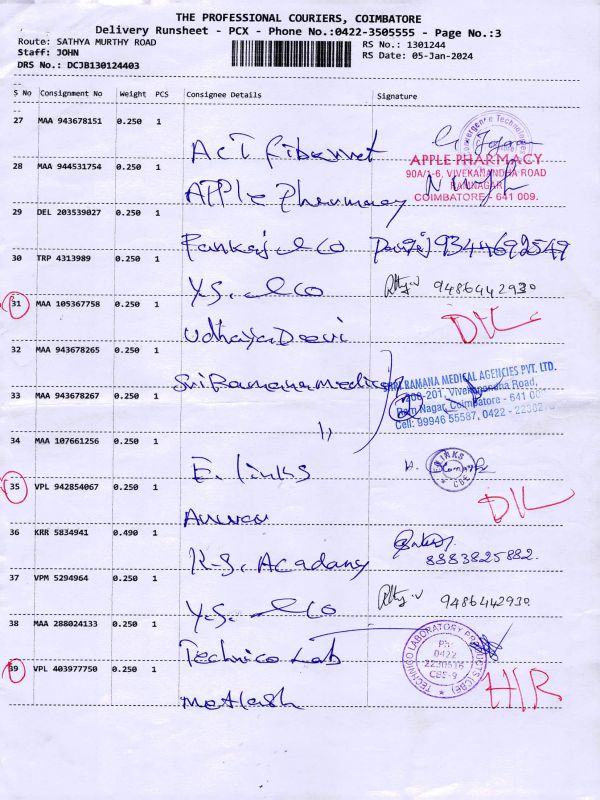 THE PROFESSIONAL COURIERS, COIMBATORE
Delivery Runsheet - PCX - Phone No.:0422-3505555 - Page No.:3
Route: SATHYA MURTHY ROAD RS No.: 1301244
Staff: JOHN RS Date: 05-Jan-2024
DRS No.: DCJB130124403
S No Consignment No Weight PCS Consignee Details Signature
27 MAA 943678151 0.250 1
ACT Fibernet
28 MAA 944531754 0.250 1
APPLE PHARMACY
90A/1-6, VIVEKANANDHA ROAD
RAMNAGAR
COIMBATORE - 641 009.
Apple Pharmacy
29 DEL 203539027 0.250 1
Pankaj & Co Pankaj 9344692549
30 TRP 4313989 0.250 1
Y.S. & Co 9486442930
31 MAA 105367758 0.250 1
Udhaya Devi DL
32 MAA 943678265 0.250 1
Sri Ramana Medical
SRI RAMANA MEDICAL AGENCIES PVT. LTD.
206-201, Vivekanandha Road,
Ram Nagar, Coimbatore - 641 00
Cell: 99946 55587, 0422 -
33 MAA 943678267 0.250 1
"
34 MAA 107661256 0.250 1
E. links E.LINKS CBE
35 VPL 942854067 0.250 1
DL
36 KRR 5834941 0.490 1
K.S. Academy 8883825882.
37 VPM 5294964 0.250 1
Y.S. & Co 9486442930
38 MAA 288024133 0.250 1
Technico Lab
TECHNICO LABORATORY PRODUCTS (CBE)
PH:
0422
CBE-9
39 VPL 403977750 0.250 1
Metlash H/R